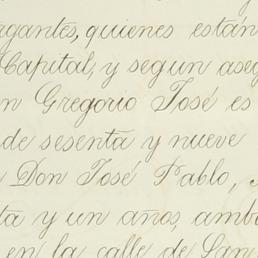 agantes, quienes están
Capital, y segun aseg
n Gregorio José es
de sesenta y nueve
Don José Pablo,
ta y un años, amb
en la calle de San